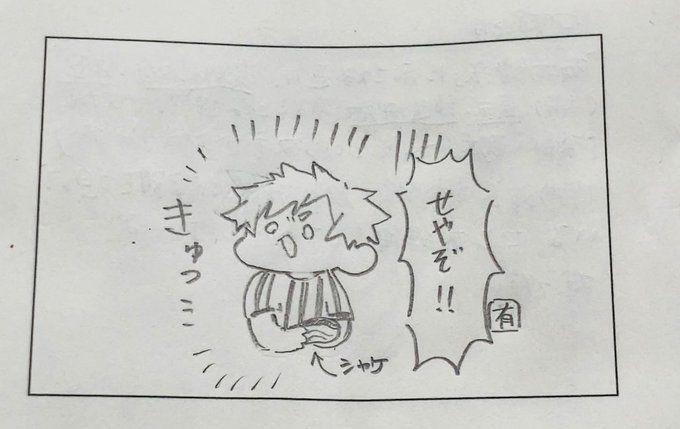 せやぞ!!
有
きゅっ
シャケ